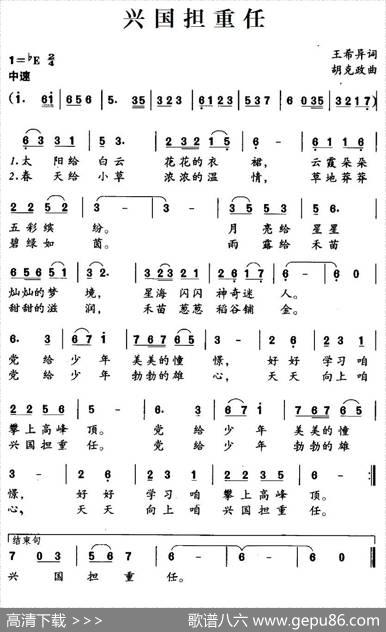 兴国担重任
1=♭E 2/4
中速
王希异词
胡克政曲
(i. 6i | 6 5 6 | 5. 35 | 3 2 3 | 6123 | 537 | 6035 | 3217)
6 3 3 1 | 5 3. | 2 3 2 1 5 | 6 - | 6 1 1 6
1.太 阳给 白云 花花的衣 裙, 云霞朵朵
2.春 天给 小草 浓浓的温 情, 草地莽莽
2 2 5 2 | 3 - | 3 - | 3 5 5 3 | 5 6.
五彩缤 纷。 月 亮给 星星
碧绿如 茵。 雨 露给 禾苗
6 5 6 5 1 | 3 2. | 3 2 3 5 | 2 6 1 7 | 6 - | 6 0
灿灿的梦 境, 星海闪闪 神奇迷 人。
甜甜的滋 润, 禾苗葱葱 稻谷铺 金。
6. 3 | 6 7 1 | 7 6 7 6 5 | 3 - | 2 6 | 2 3 1
党 给 少 年 美美的憧 憬, 好 好 学习 咱
党 给 少 年 勃勃的雄 心, 天 天 向上 咱
2 2 5 6 | 5 - | 6. 3 | 6 7 i | 7 6 7 6 5
攀上高峰 顶。 党 给 少 年 美美的憧
兴国担重 任。 党 给 少 年 勃勃的雄
3 - | 2 6 | 2 3 1 | 2 2 3 5 | 6 - :||
憬, 好 好 学习 咱 攀上高峰 顶。
心, 天 天 向上 咱 兴国担重 任。
结束句
7 0 3 | 5 6 7 | 6 - | 6 - | 6 0 ||
兴 国 担 重 任。
高清下载 >>>
歌谱八六 www.gepu86.com